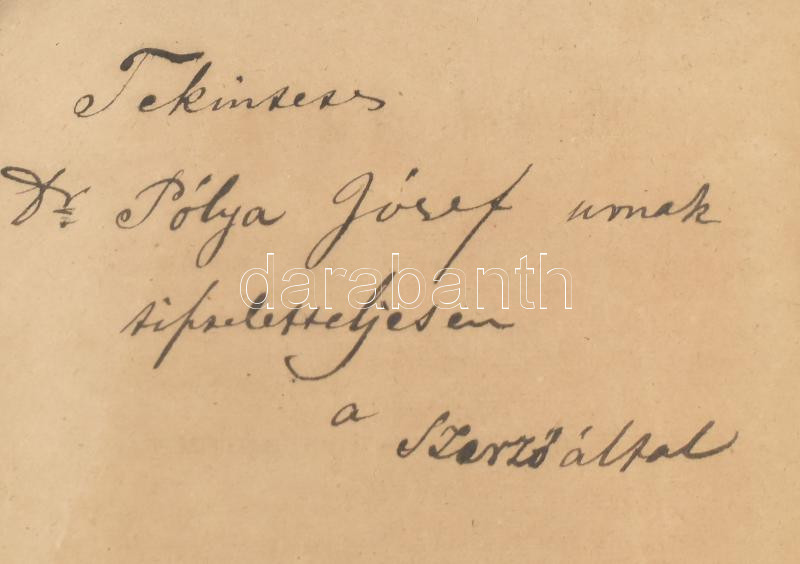 Tekintetes
Dr. Pólya József urnak
tiszteletteljesen
darabanth
a
Szerző által